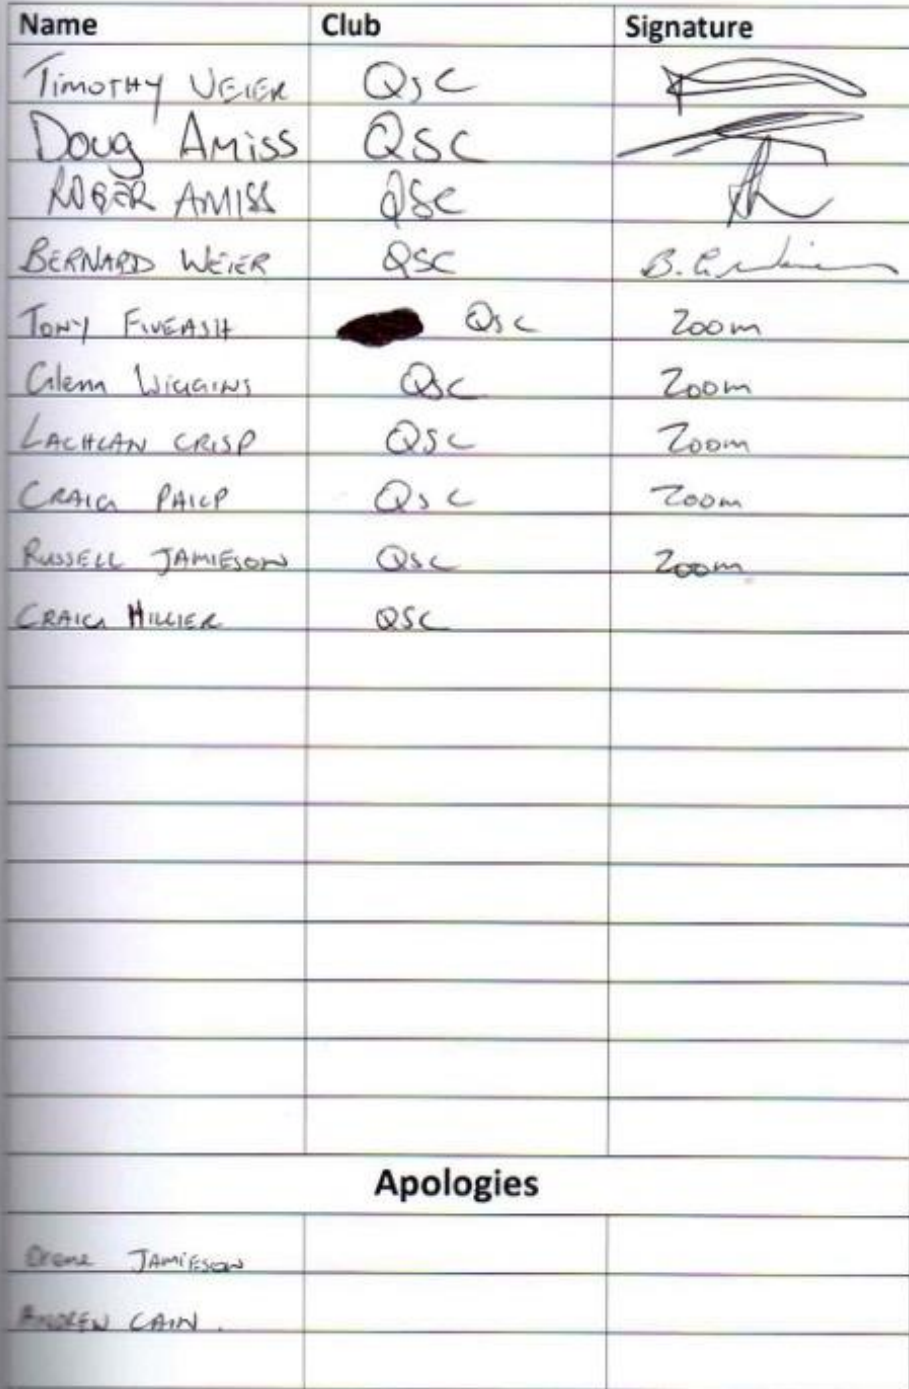 Name Club Signature
TIMOTHY WEIER QSC
Doug Amiss QSC
ROGER AMISS QSC
BERNARD WEIER QSC
TONY FIVEASH QSC Zoom
Glenn WIGGINS QSC Zoom
LACHLAN CRISP QSC Zoom
CRAIG PAILP QSC Zoom
RUSSELL JAMIESON QSC Zoom
CRAIG HILLIER QSC
Apologies
JAMIESON
ANDREW CAIN.